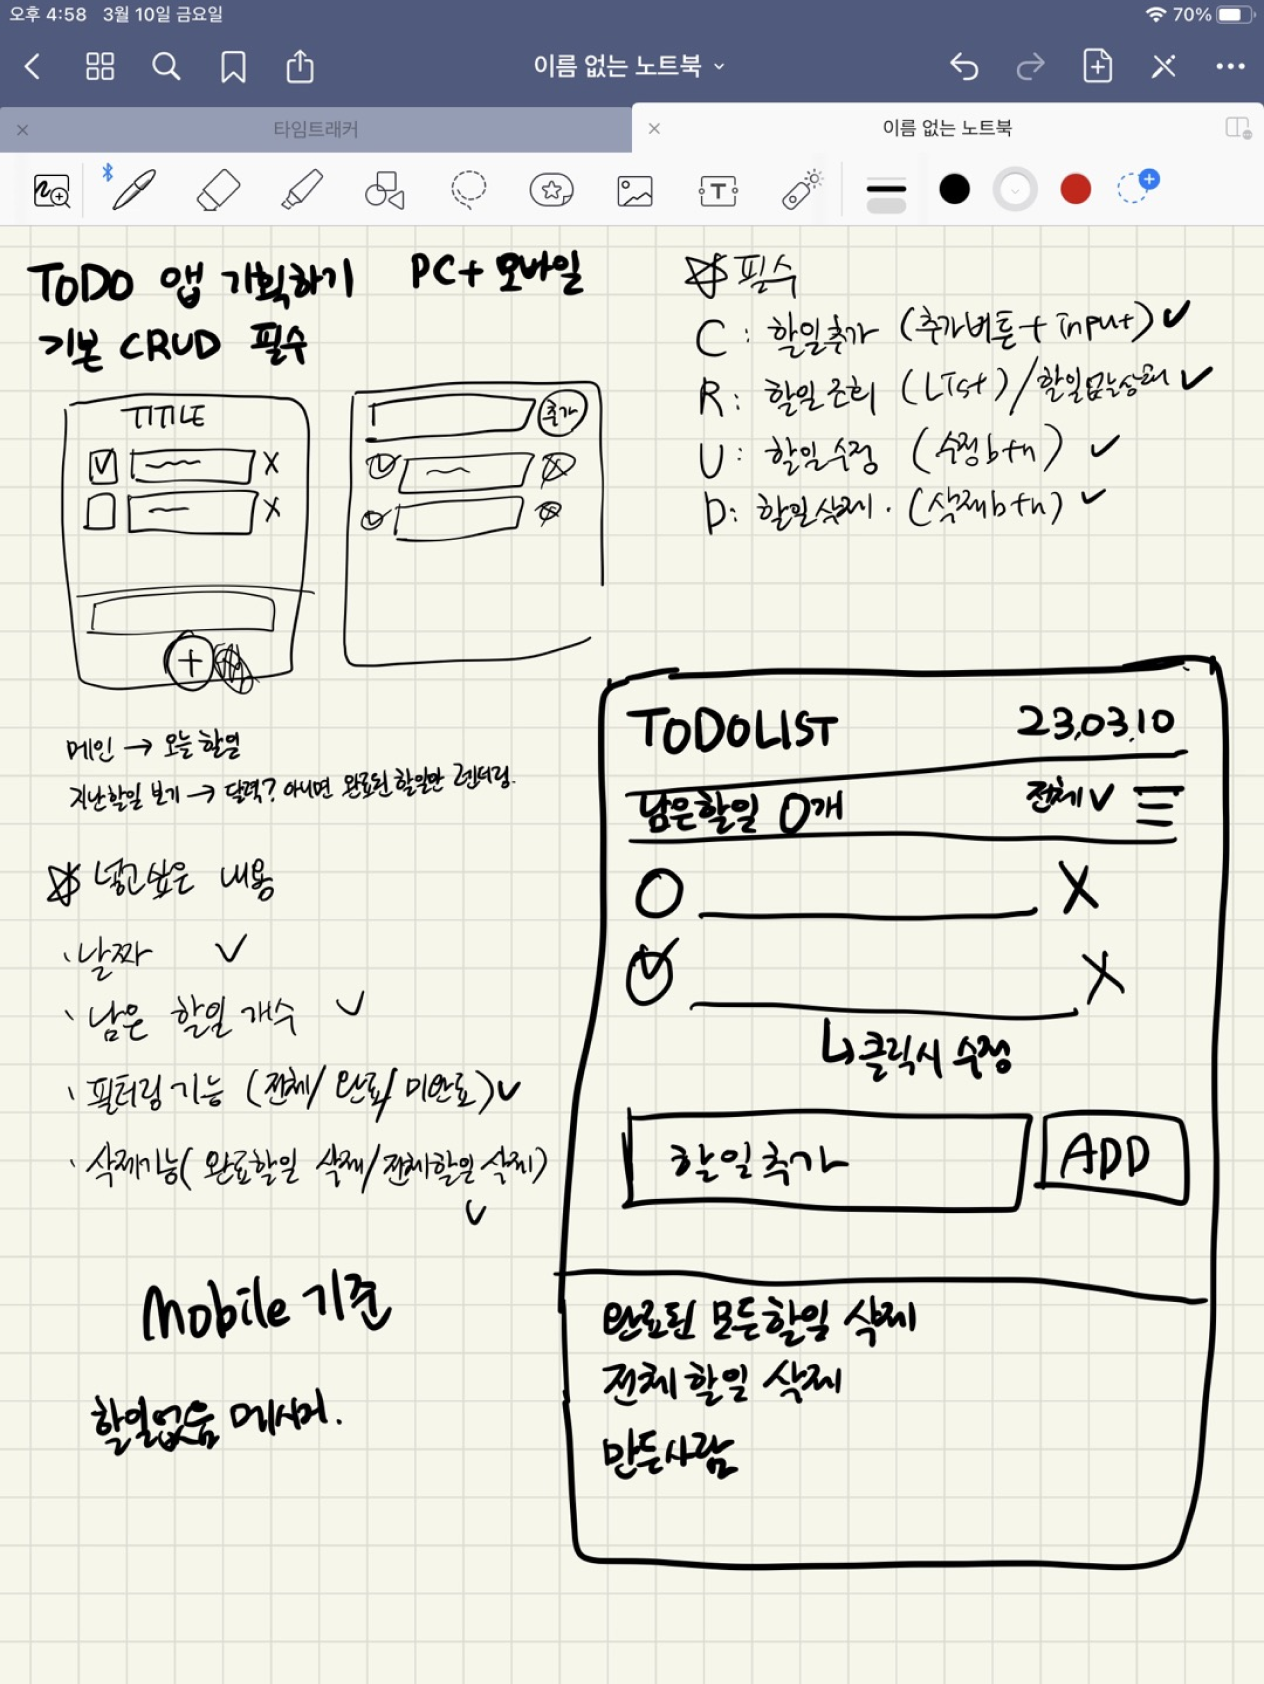 오후 4:58 3월 10일 금요일
70%
이름 없는 노트북
타임트래커
이름 없는 노트북
T
TODO 앱 기획하기 PC+ 모바일
기본 CRUD 필수
필수
C : 할일추가 (추가버튼+Input)
R : 할일조회 (LIst)/할일없는상태
U : 할일수정 (수정btn)
D : 할일삭제. (삭제btn)
TITLE
X
X
+
추가
메인 → 오늘 할일
지난할일 보기 → 달력? 아니면 완료된 할일만 렌더링.
넣고싶은 내용
· 날짜
· 남은 할일 개수
· 필터링 기능 (전체/ 완료/ 미완료)
· 삭제기능( 완료할일 삭제/전체할일 삭제)
Mobile 기준
할일없음 메시지.
TODOLIST 23.03.10
남은할일 0개 전체
X
X
클릭시 수정
할일추가 ADD
완료된 모든할일 삭제
전체 할일 삭제
만든사람